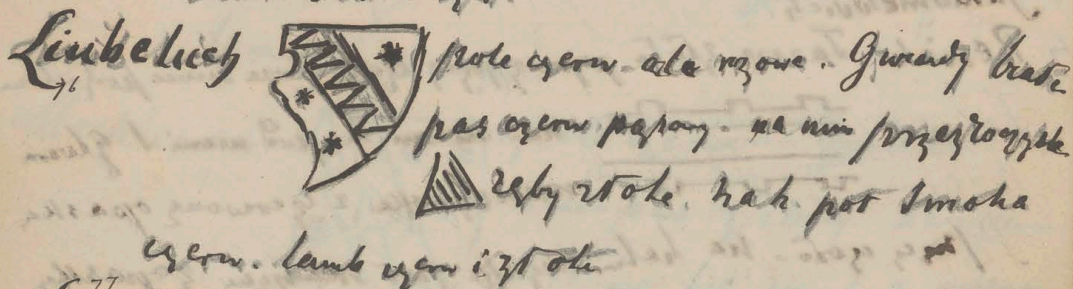 Linbeluch pole czerw ale rzowe. Gwiazdy białe
76 pas czerw pąsowy. na nim
zęby złote. hak pół smoka
czerw. lamb czerw i złote
677